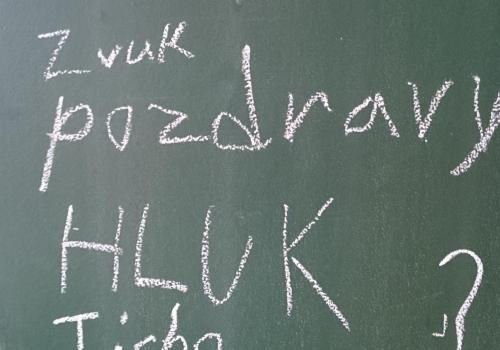 Zvuk
pozdravy
HLUK
Ticho ?